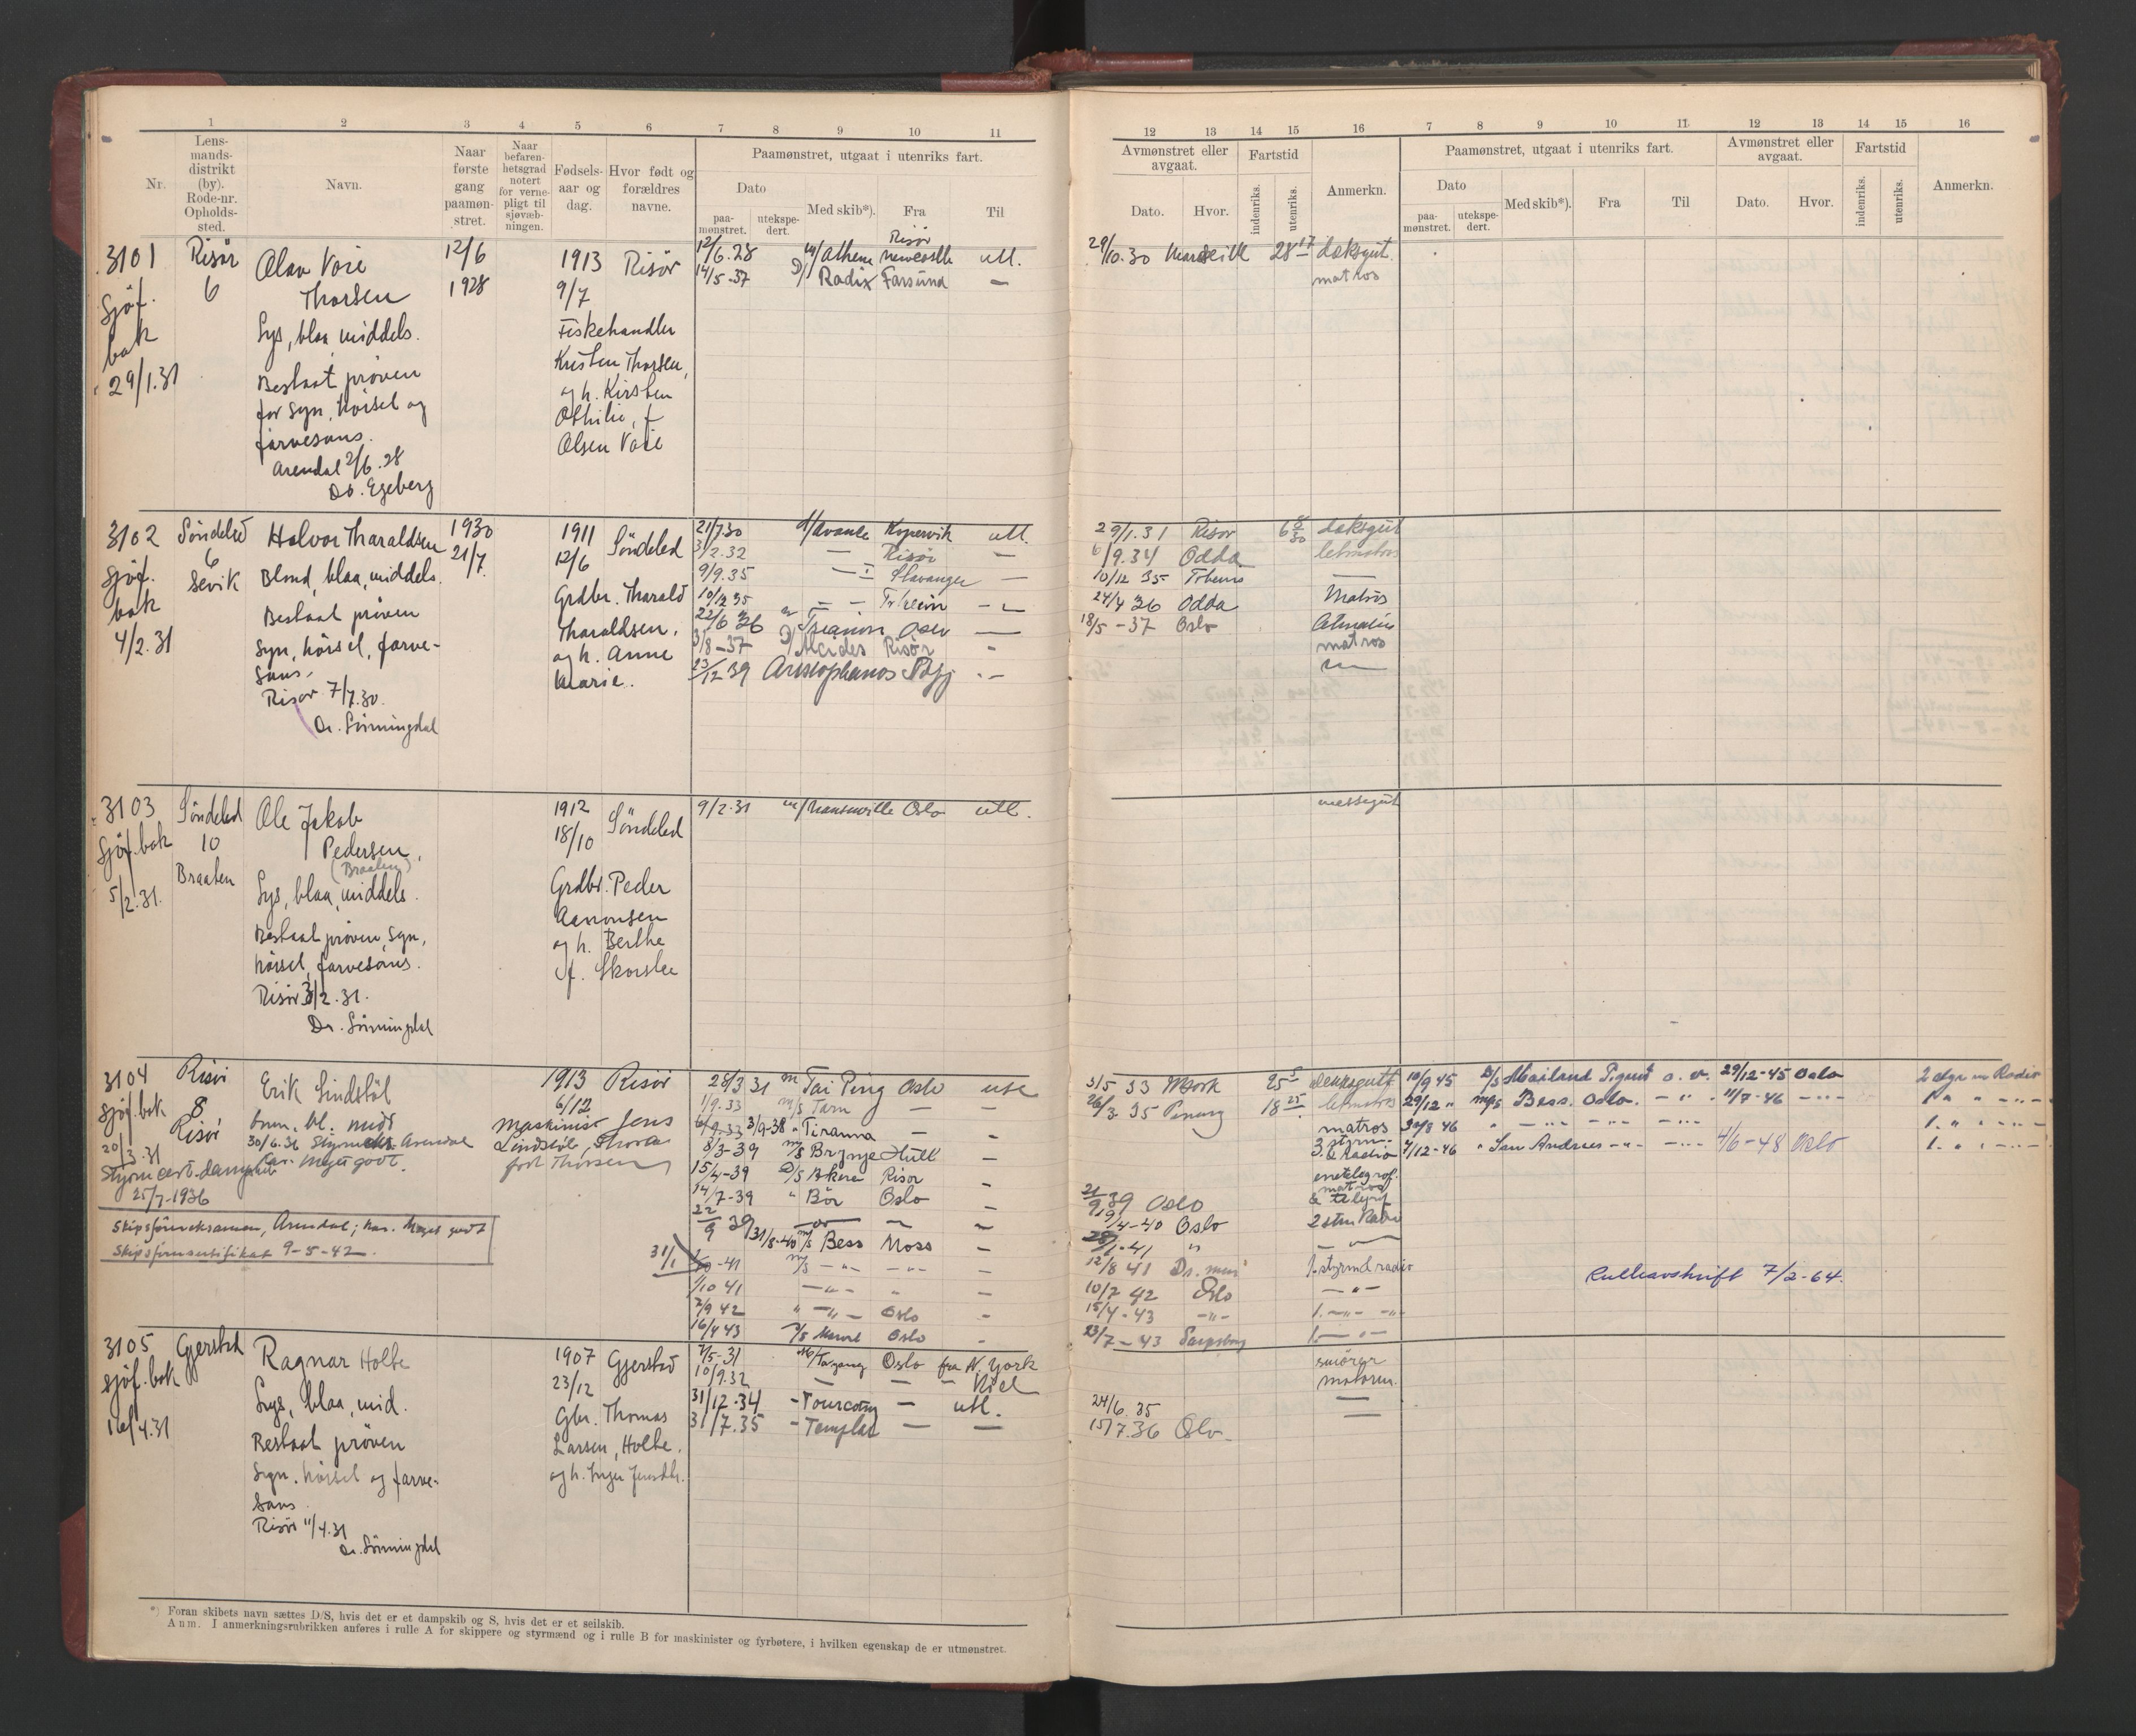 1 2 3 4 5 6 7 8 9 10 11
Nr.
Lens-
mands-
distrikt
(by).
Rode-nr.
Opholds-
sted.
Navn.
Naar
første
gang
paamøn-
stret.
Naar
befaren-
hetsgrad
notert
for verne-
pligt til
sjøvæb-
ningen.
Fødsels-
aar og
dag.
Hvor født og
forældres
navne.
Paamønstret, utgaat i utenriks fart.
Dato
paa-
mønstret.
utekspe-
dert.
Med skib*).
Fra
Til
12 13 14 15 16 7 8 9 10 11 12 13 14 15 16
Avmønstret eller
avgaat.
Dato.
Hvor.
Fartstid
indenriks.
utenriks.
Anmerkn.
Paamønstret, utgaat i utenriks fart.
Dato
paa-
mønstret.
utekspe-
dert.
Med skib*).
Fra
Til
Avmønstret eller
avgaat.
Dato.
Hvor.
Fartstid
indenriks.
utenriks.
Anmerkn.
3101
Sjöf.
bok
29/1.31
Risör
6
Olav Voie
Thorsen
Lys, blaa, middels.
Bestaat prøven
for syn, hörsel og
farvesans.
Arendal 2/6.28
Dr. Egeberg
12/6
1928
1913
9/7
Risör
Fiskehandler
Kristen Thorsen,
og h. Kirsten
Othilie, f
Olsen Voie
Risör
12/6.28 m/Athene Newcastle utl.
14/5-37 D/ Radix Farsund —
29/10.30 Marseille 28 17 daksgut.
matros
3102
Sjöf.
bok
4/2.31
Söndeled
6
Sevik
Halvor Tharaldsen
Blond, blaa, middels.
Bestaat prøven
syn, hörsel, farve-
sans.
Risør 7/7.30.
Dr. Sönningdal
1930
21/7.
1911
12/6
Söndeled
Grdbr. Tharald
Tharaldsen,
og h. Anne
Marie.
21/7.30 Kopervik utl.
3/2.32 — Risör —
9/9.35 — Stavanger —
10/12 35 — —
22/6 36 Trianon Oslo —
3/8-37 D/ Alcides Risör -
23/12 39 Aristophanes
29/1.31 Risør 6 daksgut
6/9.34 Odda letmatros
10/12 35 —
24/4 36 Odda Matros
18/5-37 Oslo
matros
3103
Sjöf.bok
5/2.31.
Söndeled
10
Braaten
Ole Jakob
Pedersen,
(Braaten)
Lys, blaa, middels.
Bestaat prøven, syn,
hörsel, farvesans.
Risör 3/2.31.
Dr. Sönningdal
1912
18/10
Söndeled
Grdbr. Peder
Aanonsen
og h. Berthe
f.
9/2.31 Oslo utl.
messegut
3104
Sjöf.bok
20/3.31
Risör
8
Risör
Erik Lindstöl
brun, bl. midd
30/6.36 Arendal
Kar. Meget godt.
25/7-1936
Skipsförereksamen, Arendal; kar. Meget godt
Skipsförersertifikat 9-5-42.
1913
6/12
Risör
Maskinist Jens
Lindstöl,
født Thorsen
28/3 31 m Tai Ping Oslo utl
1/9.33 m/s Tarn — —
3/9-38 " Tiranna — —
8/3-39 m/s Brynje Hull —
15/4-39 D/S Akera Risør —
14/7-39 " Bör Oslo —
22/9 39 — — —
31/8-40 m/s Bess Moss —
31/1 -41 m/s — " — — " — —
1/10 41 — " — " —
2/9 42 " — " — Oslo —
16/4 43 Oslo —
3/5 33 25 5 dekksgutt
26/3.35 18 25 letmatros
matros
3. styrm.
& Radio
matros
21/9 39 Oslo
19/4-40 Oslo
28/1-41 "
12/8 41 1. styrm & radio
10/7 42 Oslo — " —
15/4-43 — " — 1. — " — — " —
23/7-43 Sarpsborg 1. — " —
10/9 45 D/S Mailand o. v. 29/12-45 Oslo
29/12 " m/s Bess. Oslo. — " — 11/7-46 — " —
7/12-46 " San Andres — " — — " — 4/6-48 Oslo
Rulleavskrift 7/2-64.
3105
sjöf.bok
16/4.31
Gjerstad
Ragnar Holte
Lys, blaa, mid.
Bestaat prøven
Syn, hörsel og farve-
sans.
Risör 11/4.31
Dr. Sönningdal
1907
23/12
Gjerstad
Gbr. Thomas
Larsen, Holte.
og h. Inger
7/5-31 Oslo fra N. York
10/9.32 — — Kiel
31/12.34 - Tourcoing — utl.
31/7.35 - Templar — —
smörer
motorm.
24/6.35 —
15/7.36 Oslo. —
*) Foran skibets navn sættes D/S, hvis det er et dampskib og S, hvis det er et seilskib.
Anm. I anmerkningsrubrikken anføres i rulle A for skippere og styrmænd og i rulle B for maskinister og fyrbøtere, i hvilken egenskap de er utmønstret.